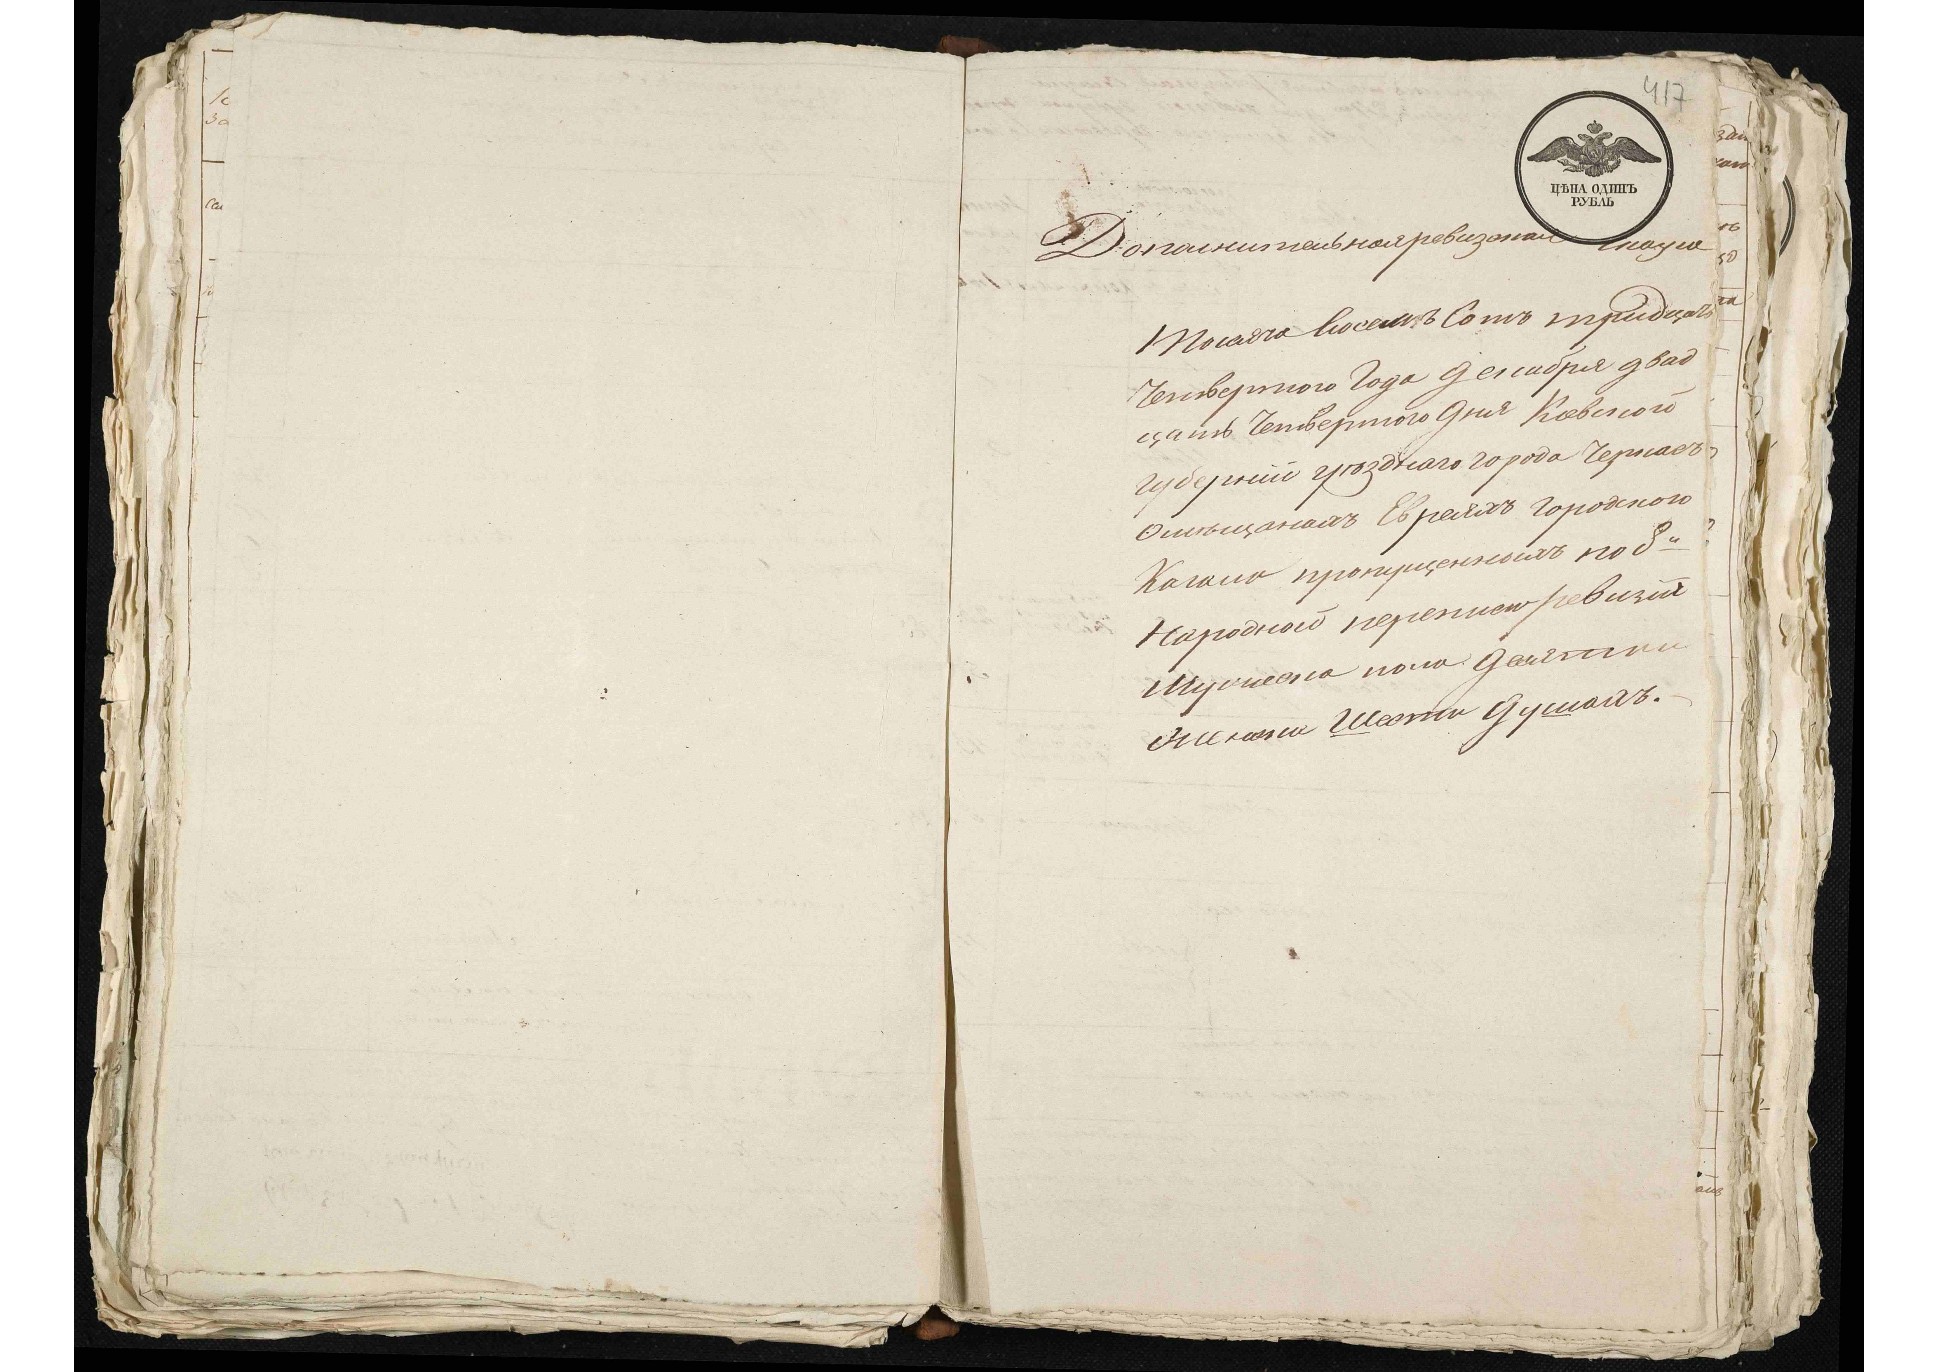 417
ЦѢНА ОДИНЪ
РУБЛЬ
Дополнительная ревизская сказка
Тысяча восемъ Сотъ тридцать
Четвертого Года декабря двад
цать Четвертого дня Кіевской
губерніи уѣзднаго города Черкасъ
о мѣщанахъ Евреяхъ Городского
Кагала пропущенныхъ по 8й
Народной переписи ревизіи
Мужеска пола десятии
Женска Шести душахъ.